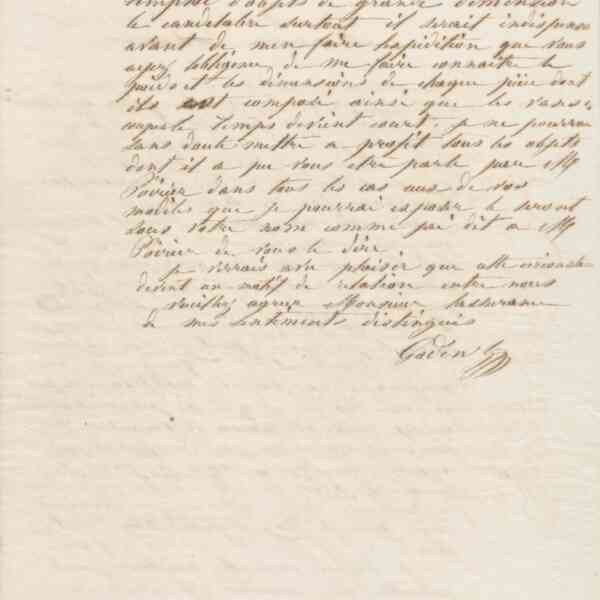 d'objets de grande dimension
le candelabre surtout il serait indispens
avant de m'en faire l'expédition que vous
ayez l'obligence de me faire connaître le
poids et les dimensions de chaque pièce dont
ils sont composé ainsi que les vases
le temps devient court, je ne pourrai
sans doute mettre a profit tous les objets
dont il a pu vous etre parlé par Mr
Poirier dans tous les cas ceux de vos
modèles que je pourrai exposer le seront
sous votre nom comme j'ai dit a Mr
Poirier de vous le dire
je verrais avec plaisir que cette circonsta
devint un motif de relation entre nous
veuillez agreer Monsieur l'assurance
de mes sentiments distingués
Godin